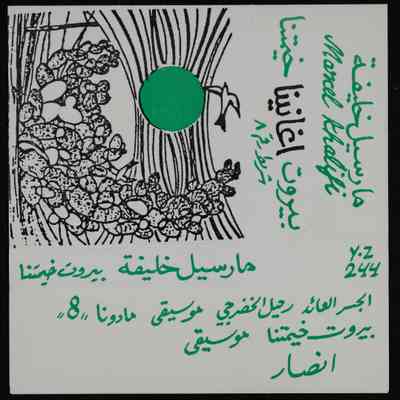 مارسيل خليفة
Marcel Khalifi
بيروت اغانينا خيمتنا
شريط رقم ٨
مارسيل خليفة بيروت خيمتنا
Y.Z
244
الجسر العائد رحيل الخضرجي موسيقى مادونا "8"
بيروت خيمتنا موسيقى
انصار